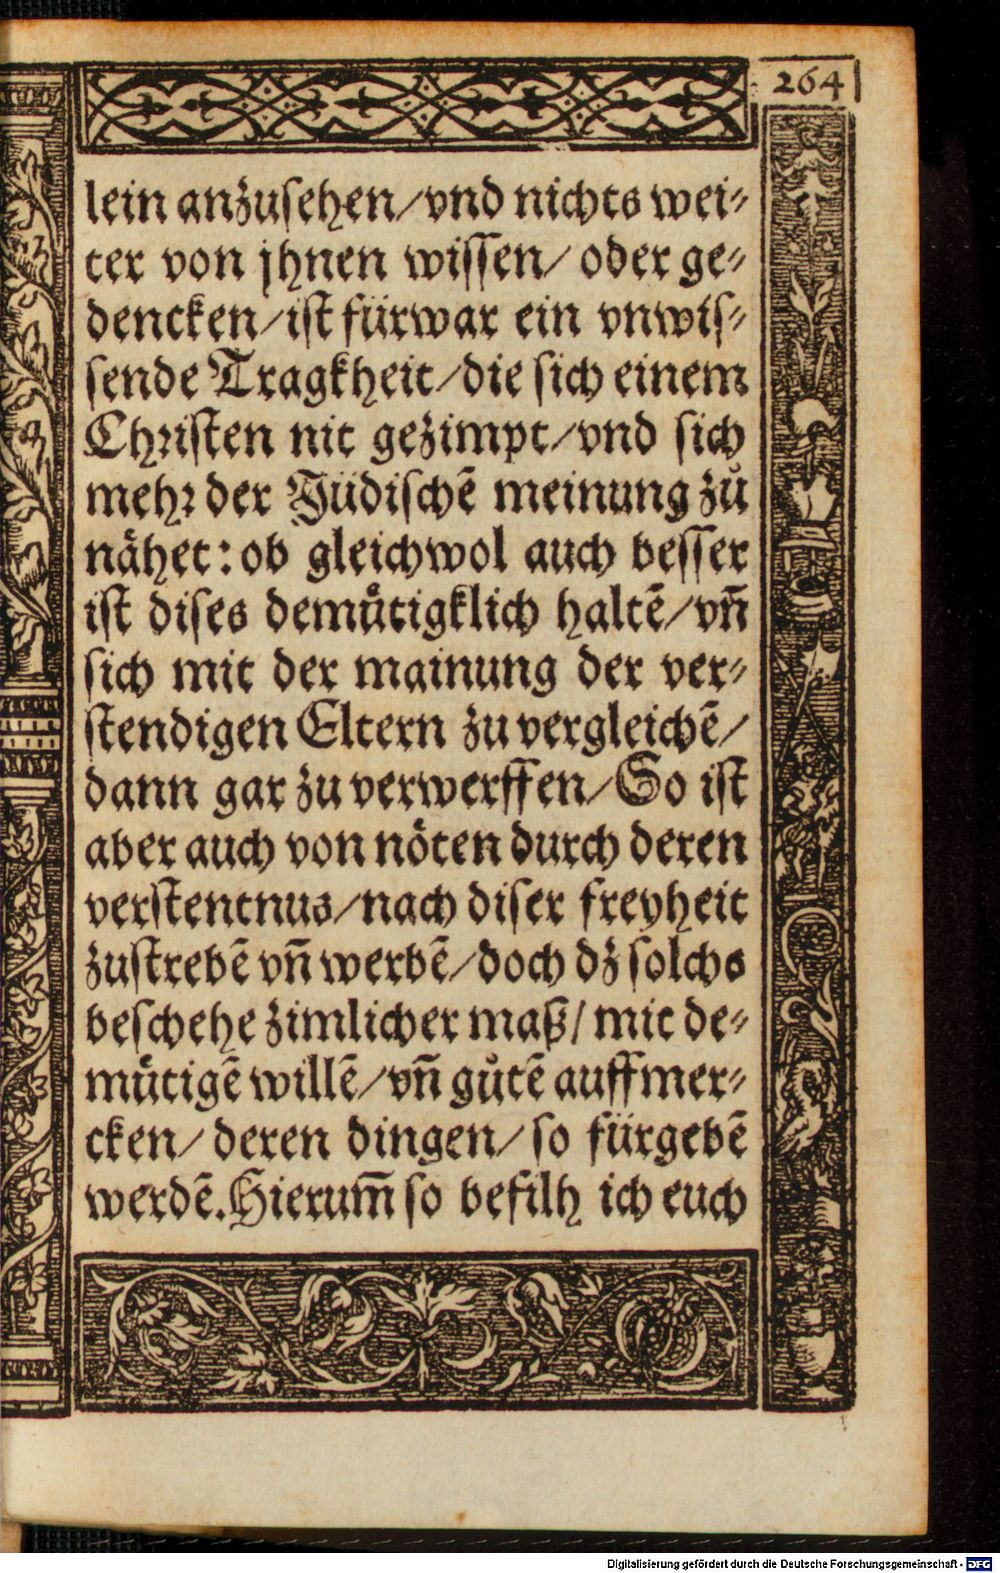 264
lein anzusehen/vnd nichts wei⸗
ter von jhnen wissen/ oder ge⸗
dencken/ist fürwar ein vnwis⸗
sende Tragkheit/die sich einem
Christen nit gezimpt/vnd sich
mehr der Jüdischẽ meinung zů
nähet: ob gleichwol auch besser
ist dises demuͤtigklich haltẽ/vñ
sich mit der mainung der ver⸗
stendigen Eltern zu vergleichẽ/
dann gar zu verwerffen/So ist
aber auch von nöten durch deren
verstentnus/nach diser freyheit
zustrebẽ vñ werbẽ/doch dz solchs
beschehe zimlicher maß/ mit de⸗
muͤtigẽ willẽ/vñ gůtẽ auffmer⸗
cken/ deren dingen/ so fürgebẽ
werdẽ. Hierum̃ so befilh ich euch
Digitalisierung gefördert durch die Deutsche Forschungsgemeinschaft - DFG